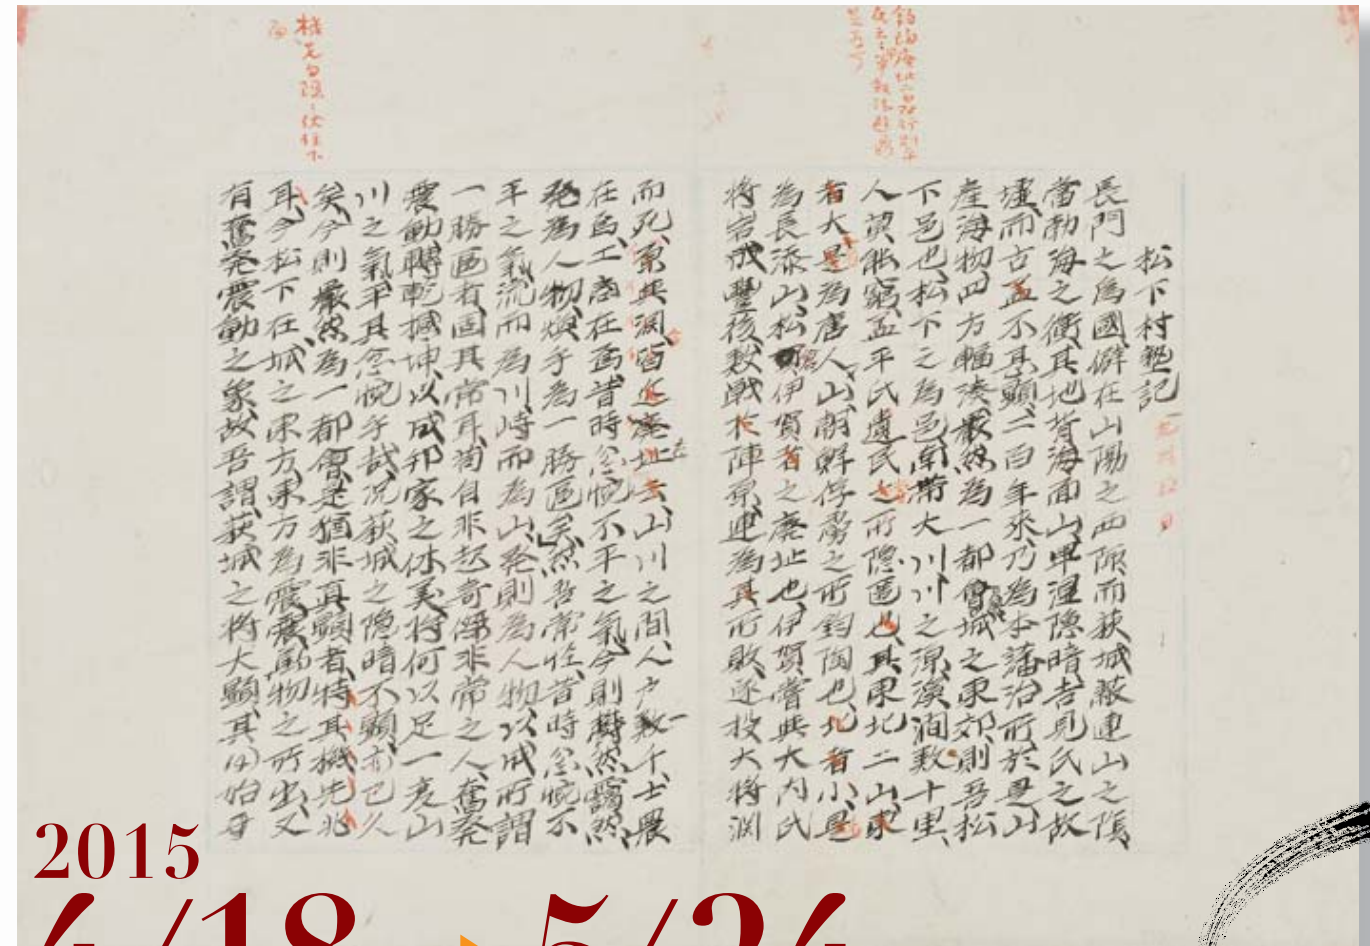 松下村塾記
長門之為國僻在山陽之西陬而萩城蔽連山之陰
當渤海之衝其地背海面山卑濕隱暗吉見氏之故
墟而古盖不甚顯二百年來乃為本藩治所於是山
產海物四方輻湊嚴然為一都會城之東郊則吾松
下邑也松下之為邑南帶大川川之源溪澗數十里
人莫能窮盖平氏遺民之所隱匿也其東北二山東
者大是為唐人山朝鮮俘虜之所鈞陶也北者小是
為長添山松倉伊賀之廢址也伊賀嘗與大内氏
將岩成豐後數戰於陣原連為其所敗遂投大將淵
而死原與淵皆近廢址云山川之間人户數一千士農
在焉工商在焉昔時忿惋不平之氣今則靄然
發為人物煥乎為一勝區矣然吾常怪昔時忿惋不
平之氣流而為川峙而為山発則為人物以成所謂
一勝區者固其常耳苟自非起奇傑非常之人奮発
震動轉乾撼坤以成邦家之休美將何以足一變山
川之氣平其忿惋乎哉況萩城之隱暗不顯亦已久
矣今則嚴然為一都會是猶非真顯者特其機先兆
耳今松下在城之東方東方為震震萬物之所出又
有奮発震動之象故吾謂萩城之將大顯其必始母
2015
4/18
5/24